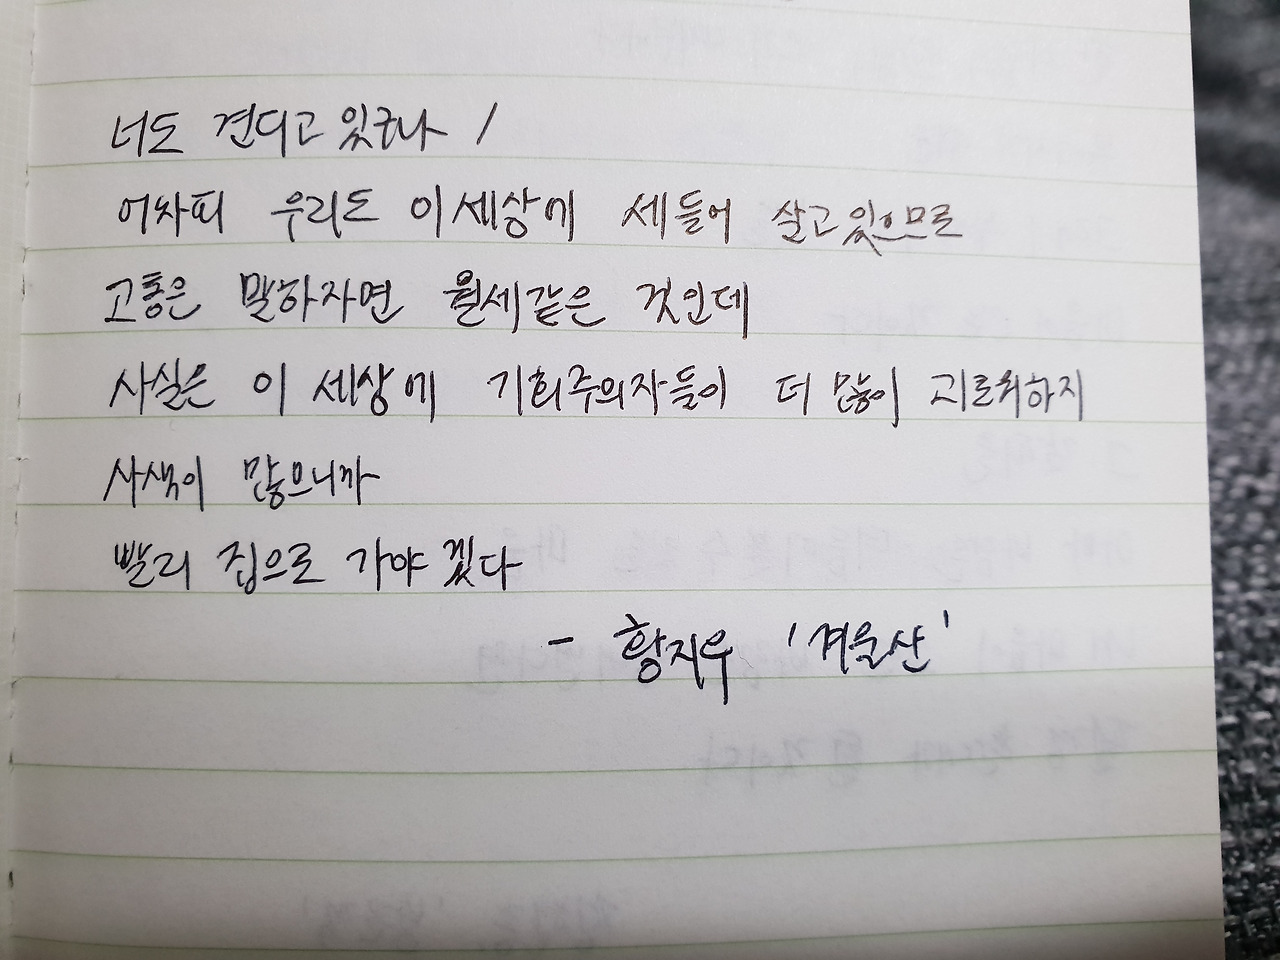 너도 견디고 있구나 /
어차피 우리도 이 세상에 세들어 살고 있으므로
고통은 말하자면 월세같은 것인데
사실은 이 세상에 기회주의자들이 더 많이 괴로워하지
사색이 많으니까
빨리 집으로 가야겠다
- 황지우 '겨울산'